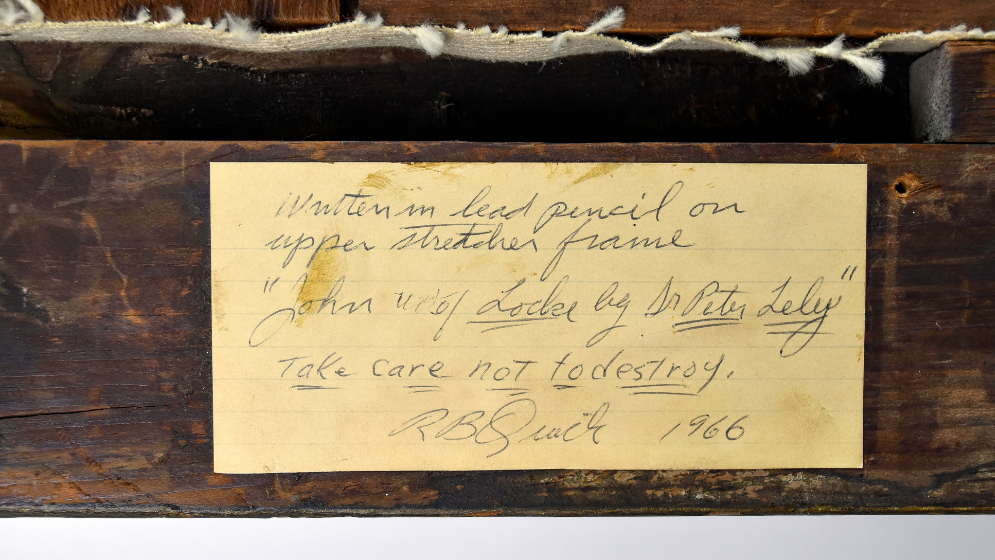 Written in lead pencil on
upper stretcher frame
"John " of Locke by Sr Peter Lely"
Take care not to destroy.
R B Quick 1966